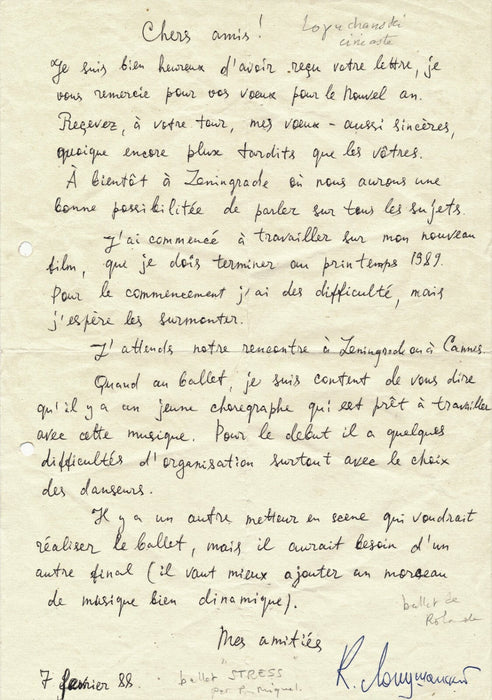 Chers amis!
cinéaste
Je suis bien heureux d'avoir reçu votre lettre, je
vous remercie pour vos voeux pour le Nouvel an.
Recevez, à votre tour, mes voeux - aussi sincères,
quoique encore plux tardits que les vôtres.
À bientôt à Leningrade où nous aurons une
bonne possibilitée de parler sur tous les sujets.
J'ai commencé à travailler sur mon nouveau
film, que je dois terminer au printemps 1989.
Pour le commencement j'ai des difficulté, mais
j'espère les surmonter.
J'attends notre rencontre à Leningrade ou à Cannes.
Quand au ballet, je suis content de vous dire
qu'il y a un jeune choregraphe qui est prêt à travailler
avec cette musique. Pour le debut il a quelques
difficultés d'organisation surtout avec le choix
des danseurs.
Il y a un autre metteur en scene qui voudrait
réaliser le ballet, mais il aurait besoin d'un
autre final (il vaut mieux ajouter un morceau
de musique bien dinamique).
ballet de
Rolande
Mes amitiés
7 fevrier 88.
ballet "STRESS"
par